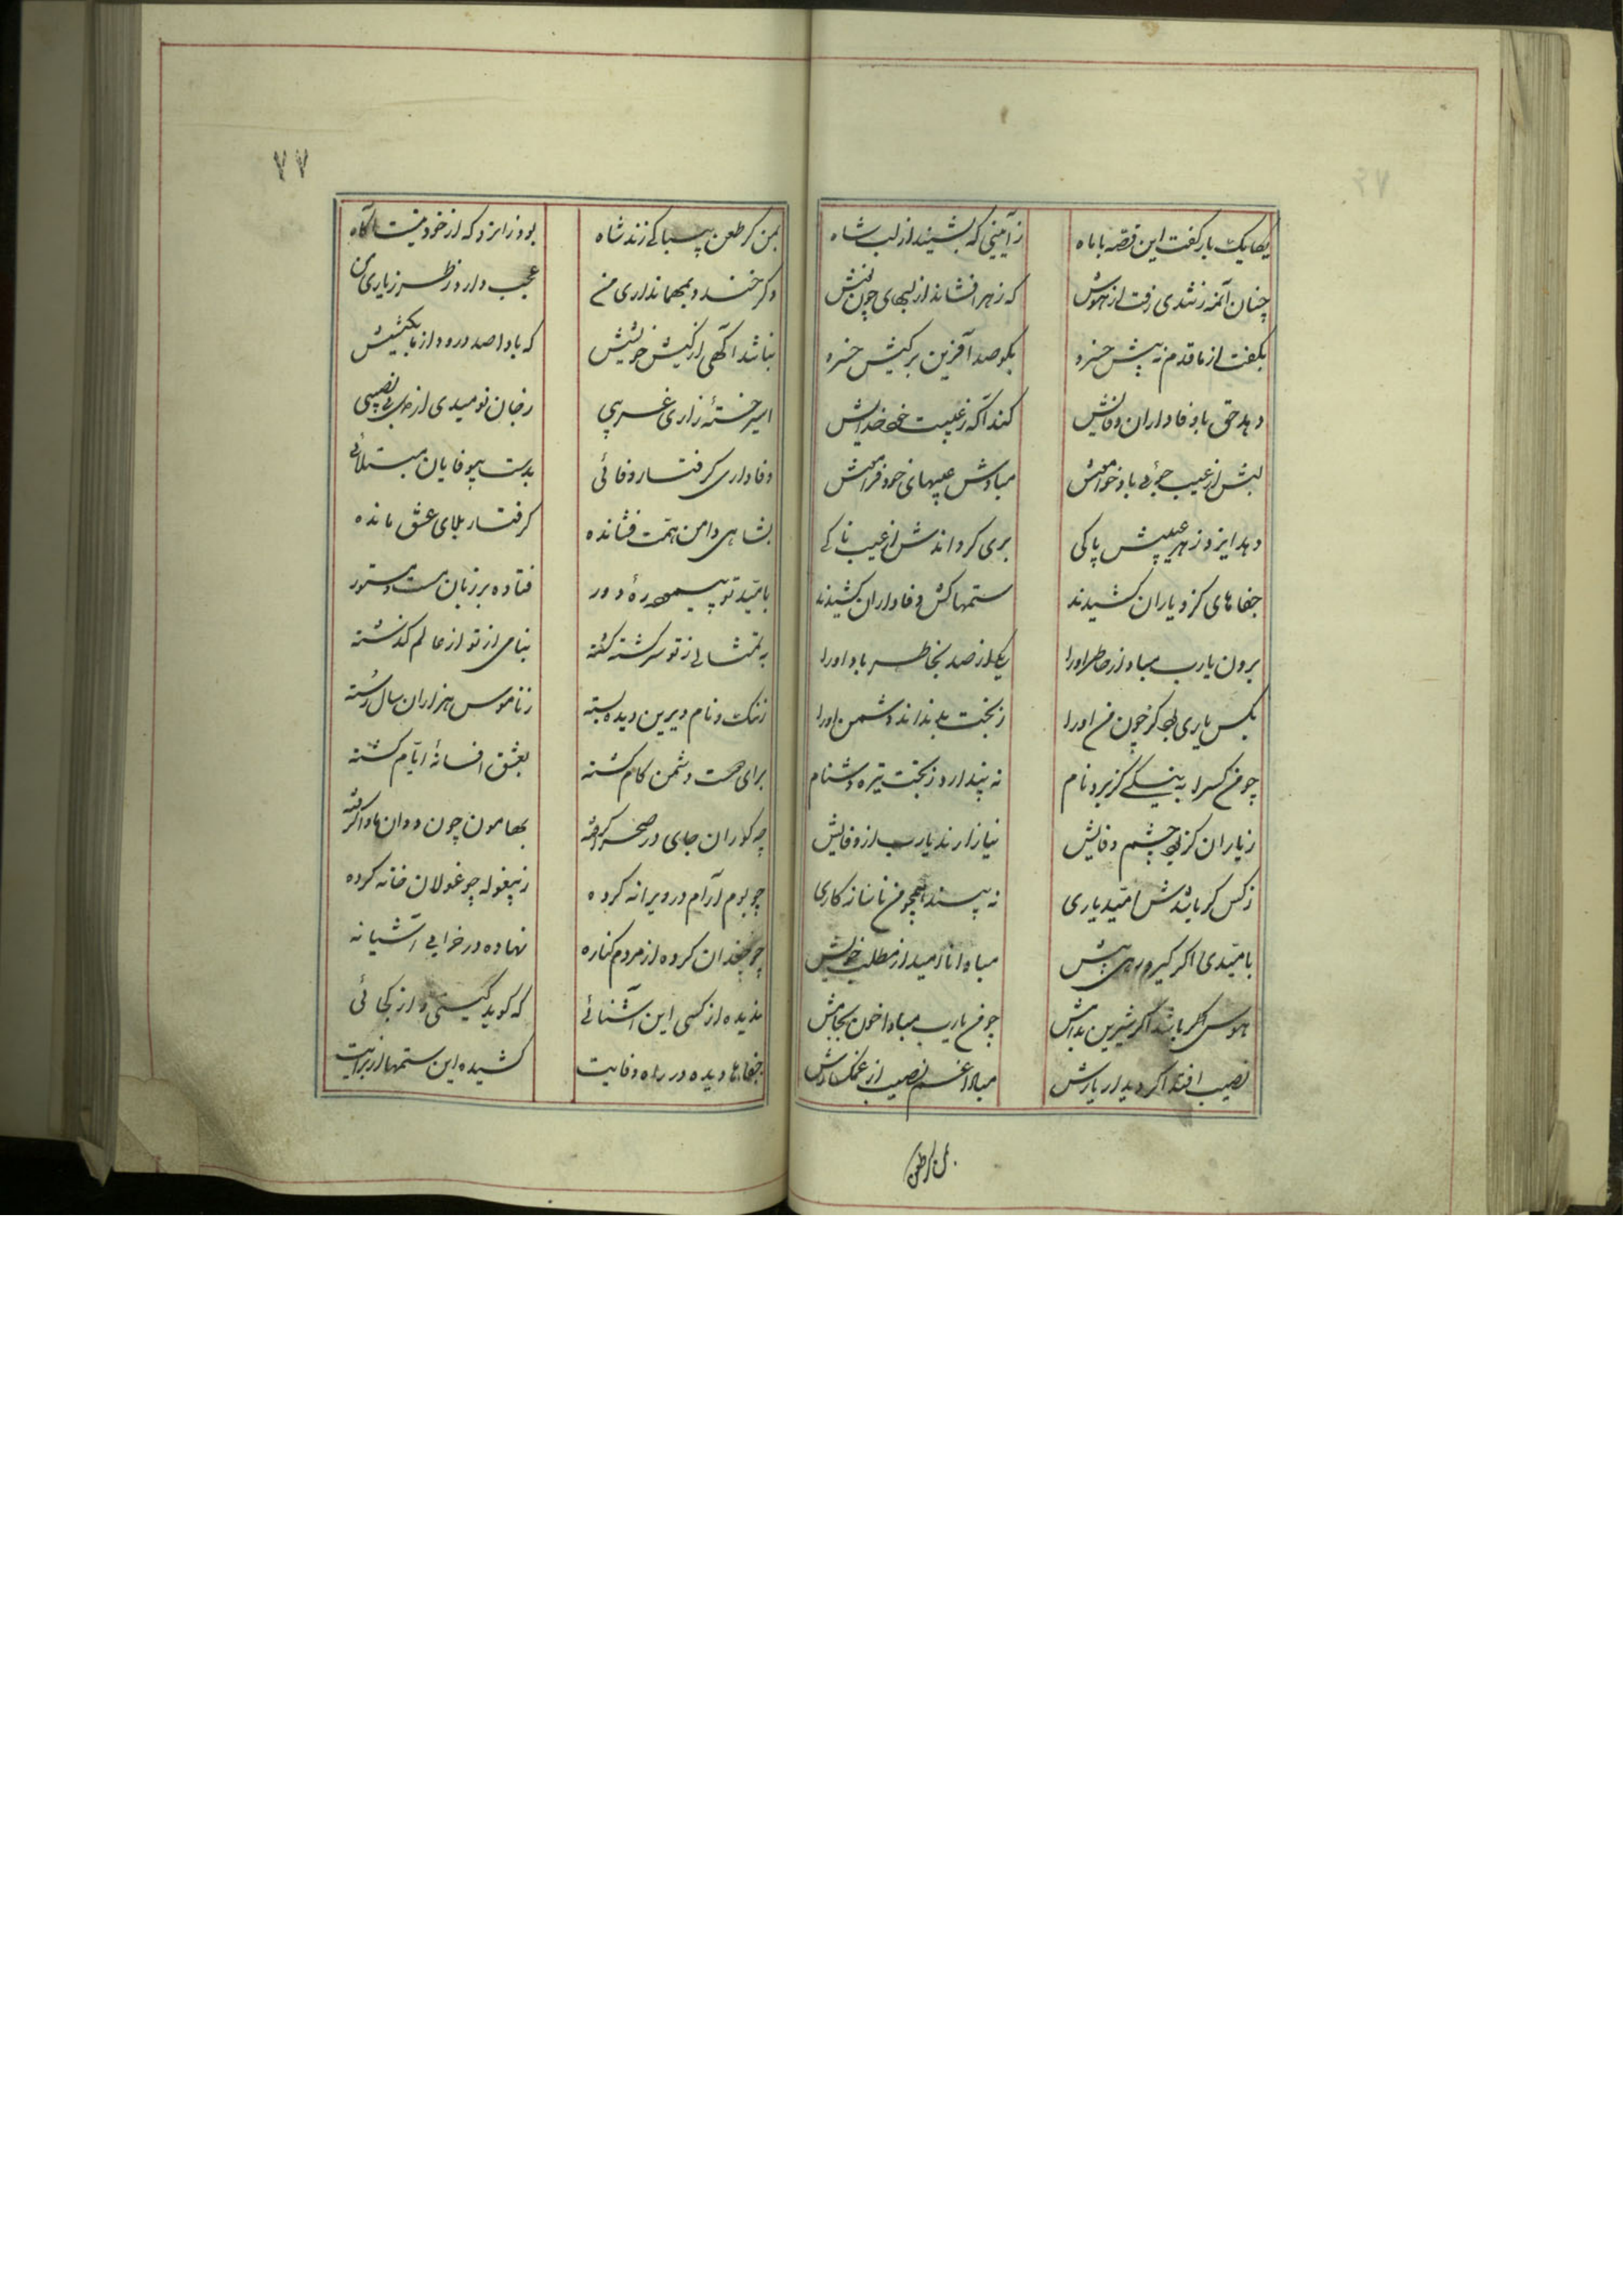 یکایک باز گفت این قصه با ماه
ز آیینی که بشنید از لب شاه
چنان آنمه ز تندی رفت از هوش
که زهر افشاند از لبهای چون نوش
بگفت از ما قدم نه پیش خسرو
بگو صد آفرین بر کیش خسرو
دهد حق با وفاداران وفائیش
کند آگه ز غیبت
لبش از عیب جوئی باد خاموش
مبادش عیبهای خود فراموش
دهد ایزد ز هر عیبیش پاکی
بری گرداندش از عیب ناکی
جفاهای کزو یاران کشیدند
ستمهاکش وفاداران کشیدند
برون یارب مباد از خاطر اورا
یکی از صد بخاطر باد اورا
بکس یاری چون من اورا
ز بخت بد نداند دشمن اورا
چو من کسرا به نیکی گر برد نام
نه پندارد ز بخت تیره دشنام
ز یاران گر بود چشم وفایش
نیازارند یارب از وفایش
ز کس گر باشدش امید یاری
نه بیسند همچو من ناسازکاری
بامیدی اگر گیرد رهی پیش
مبادا ناامید از مطلب خویش
هوس گر باشد اگر شیرین بدامش
چو من یارب مبادا خون بجامش
نصیب افتد اگر دیدار یارش
مبادا غم نصیب از غمگسارش
بمن گر طعن
۷۷
بمن گر طعن بیباکی زند شاه
بود زانرو که از خود نیست آگاه
وگر خندد بمهمانداری من
عجب دارد ز طرز یاری من
نباشد آگهی از کیش خویشش
که باد صد درود از ما بکیشش
اسیر خستهٔ زاری غریبی
ز جان نومیدی از بی نصیبی
وفاداری گرفتار وفائی
بدست بیوفایان مبتلائی
بشاهی دامن همت فشانده
گرفتار بلای عشق مانده
بامید تو پیموده ره دور
فتاده بر زبان مست و مستور
به تمثالی ز تو سرگشته گشته
بنامی از تو از عالم گذشته
ز ننگ و نام دیرین دیده بسته
ز ناموس هزاران سال رسته
برای دوست دشمن کام گشته
بعشق افسانهٔ ایام گشته
چه گوران جای در صحرا گرفته
بهامون چون ددان ماوا گرفته
چو بوم آرام در ویرانه کرده
ز بیغوله چو غولان خانه کرده
چو چغدان کرده از مردم کناره
نهاده در خرابی آشیانه
ندیده از کسی این آشنائی
که گوید کیستی و از کجائی
جفاها دیده در راه وفایت
کشیده این ستمها از برایت